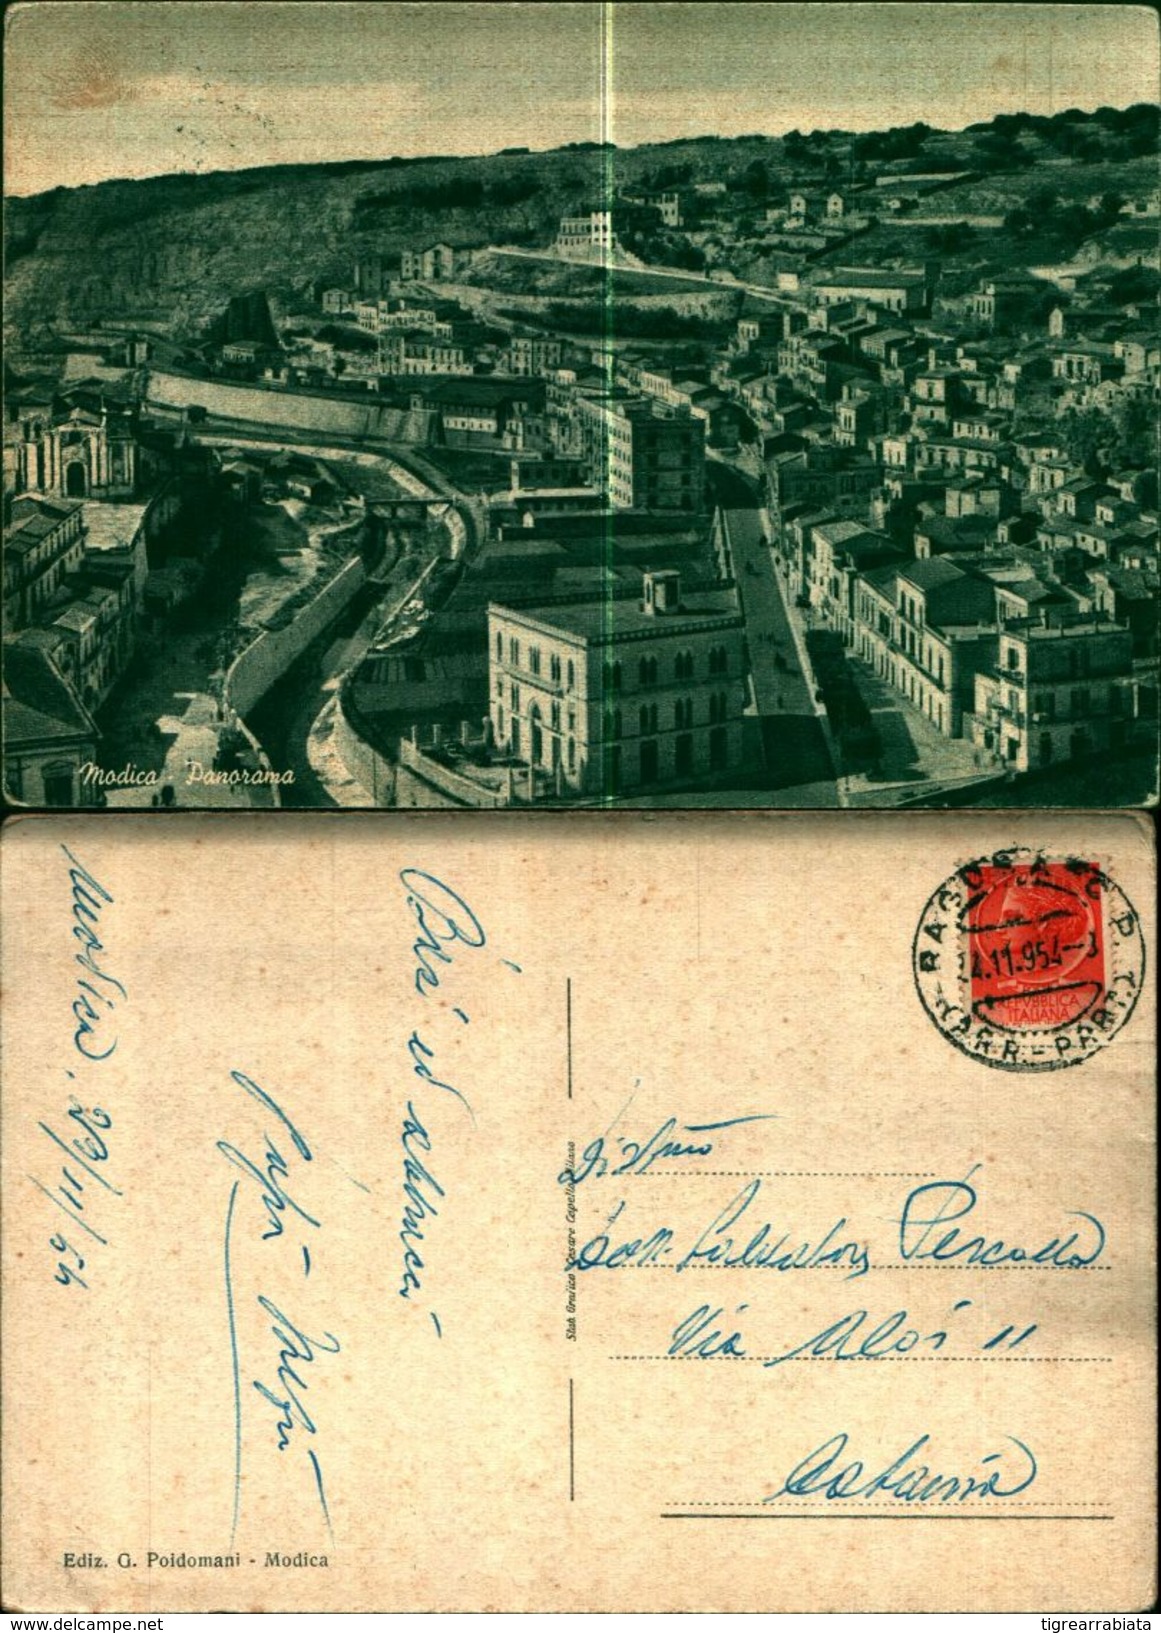 Modica - Panorama
Modica, 23/11/54
Baci ed abbracci
RAGUSA C.P.
24.11.954-8
(ARR.-PART.)
REPUBBLICA
ITALIANA
Dist/mo
Salvatore
Via Aloi 11
Catania
Stab Grafico Cesare Capello Milano
Ediz. G. Poidomani - Modica
www.delcampe.net
tigrearrabiata